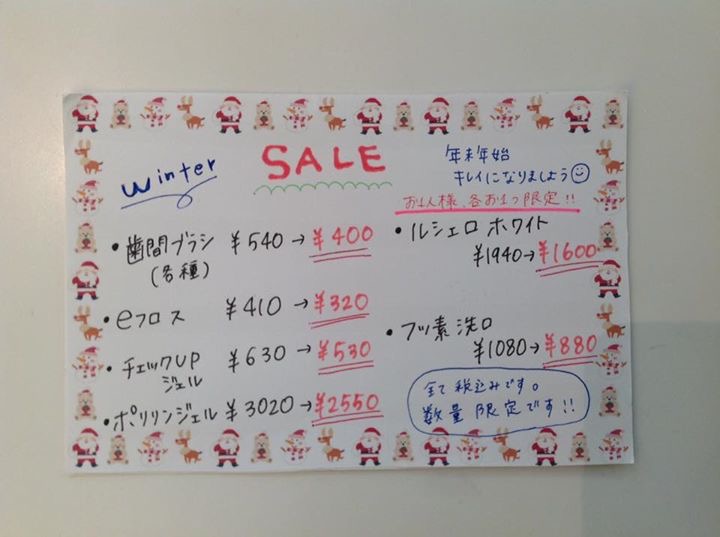 winter
SALE
年末年始
キレイになりましよう
お1人様、各お1つ限定!!
・歯間ブラシ ¥540→¥400
(各種)
・eフロス ¥410→¥320
・チェックUP ¥630→¥530
ジェル
・ポリリンジェル ¥3020→¥2550
・ルシェロ ホワイト
¥1940→¥1600
・フッ素洗口
¥1080→¥880
全て税込みです。
数量限定です!!